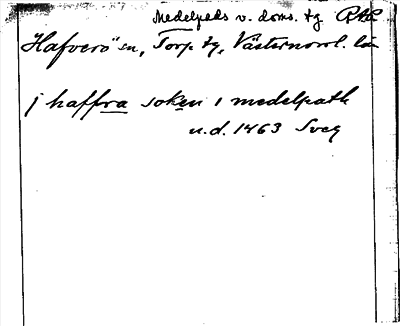 Medelpads v. doms. tg RAÄ
Hafverö sn, Torp tg, Västernorrl. län
j haffra soken i medelpath
u.d. 1463 Sveg